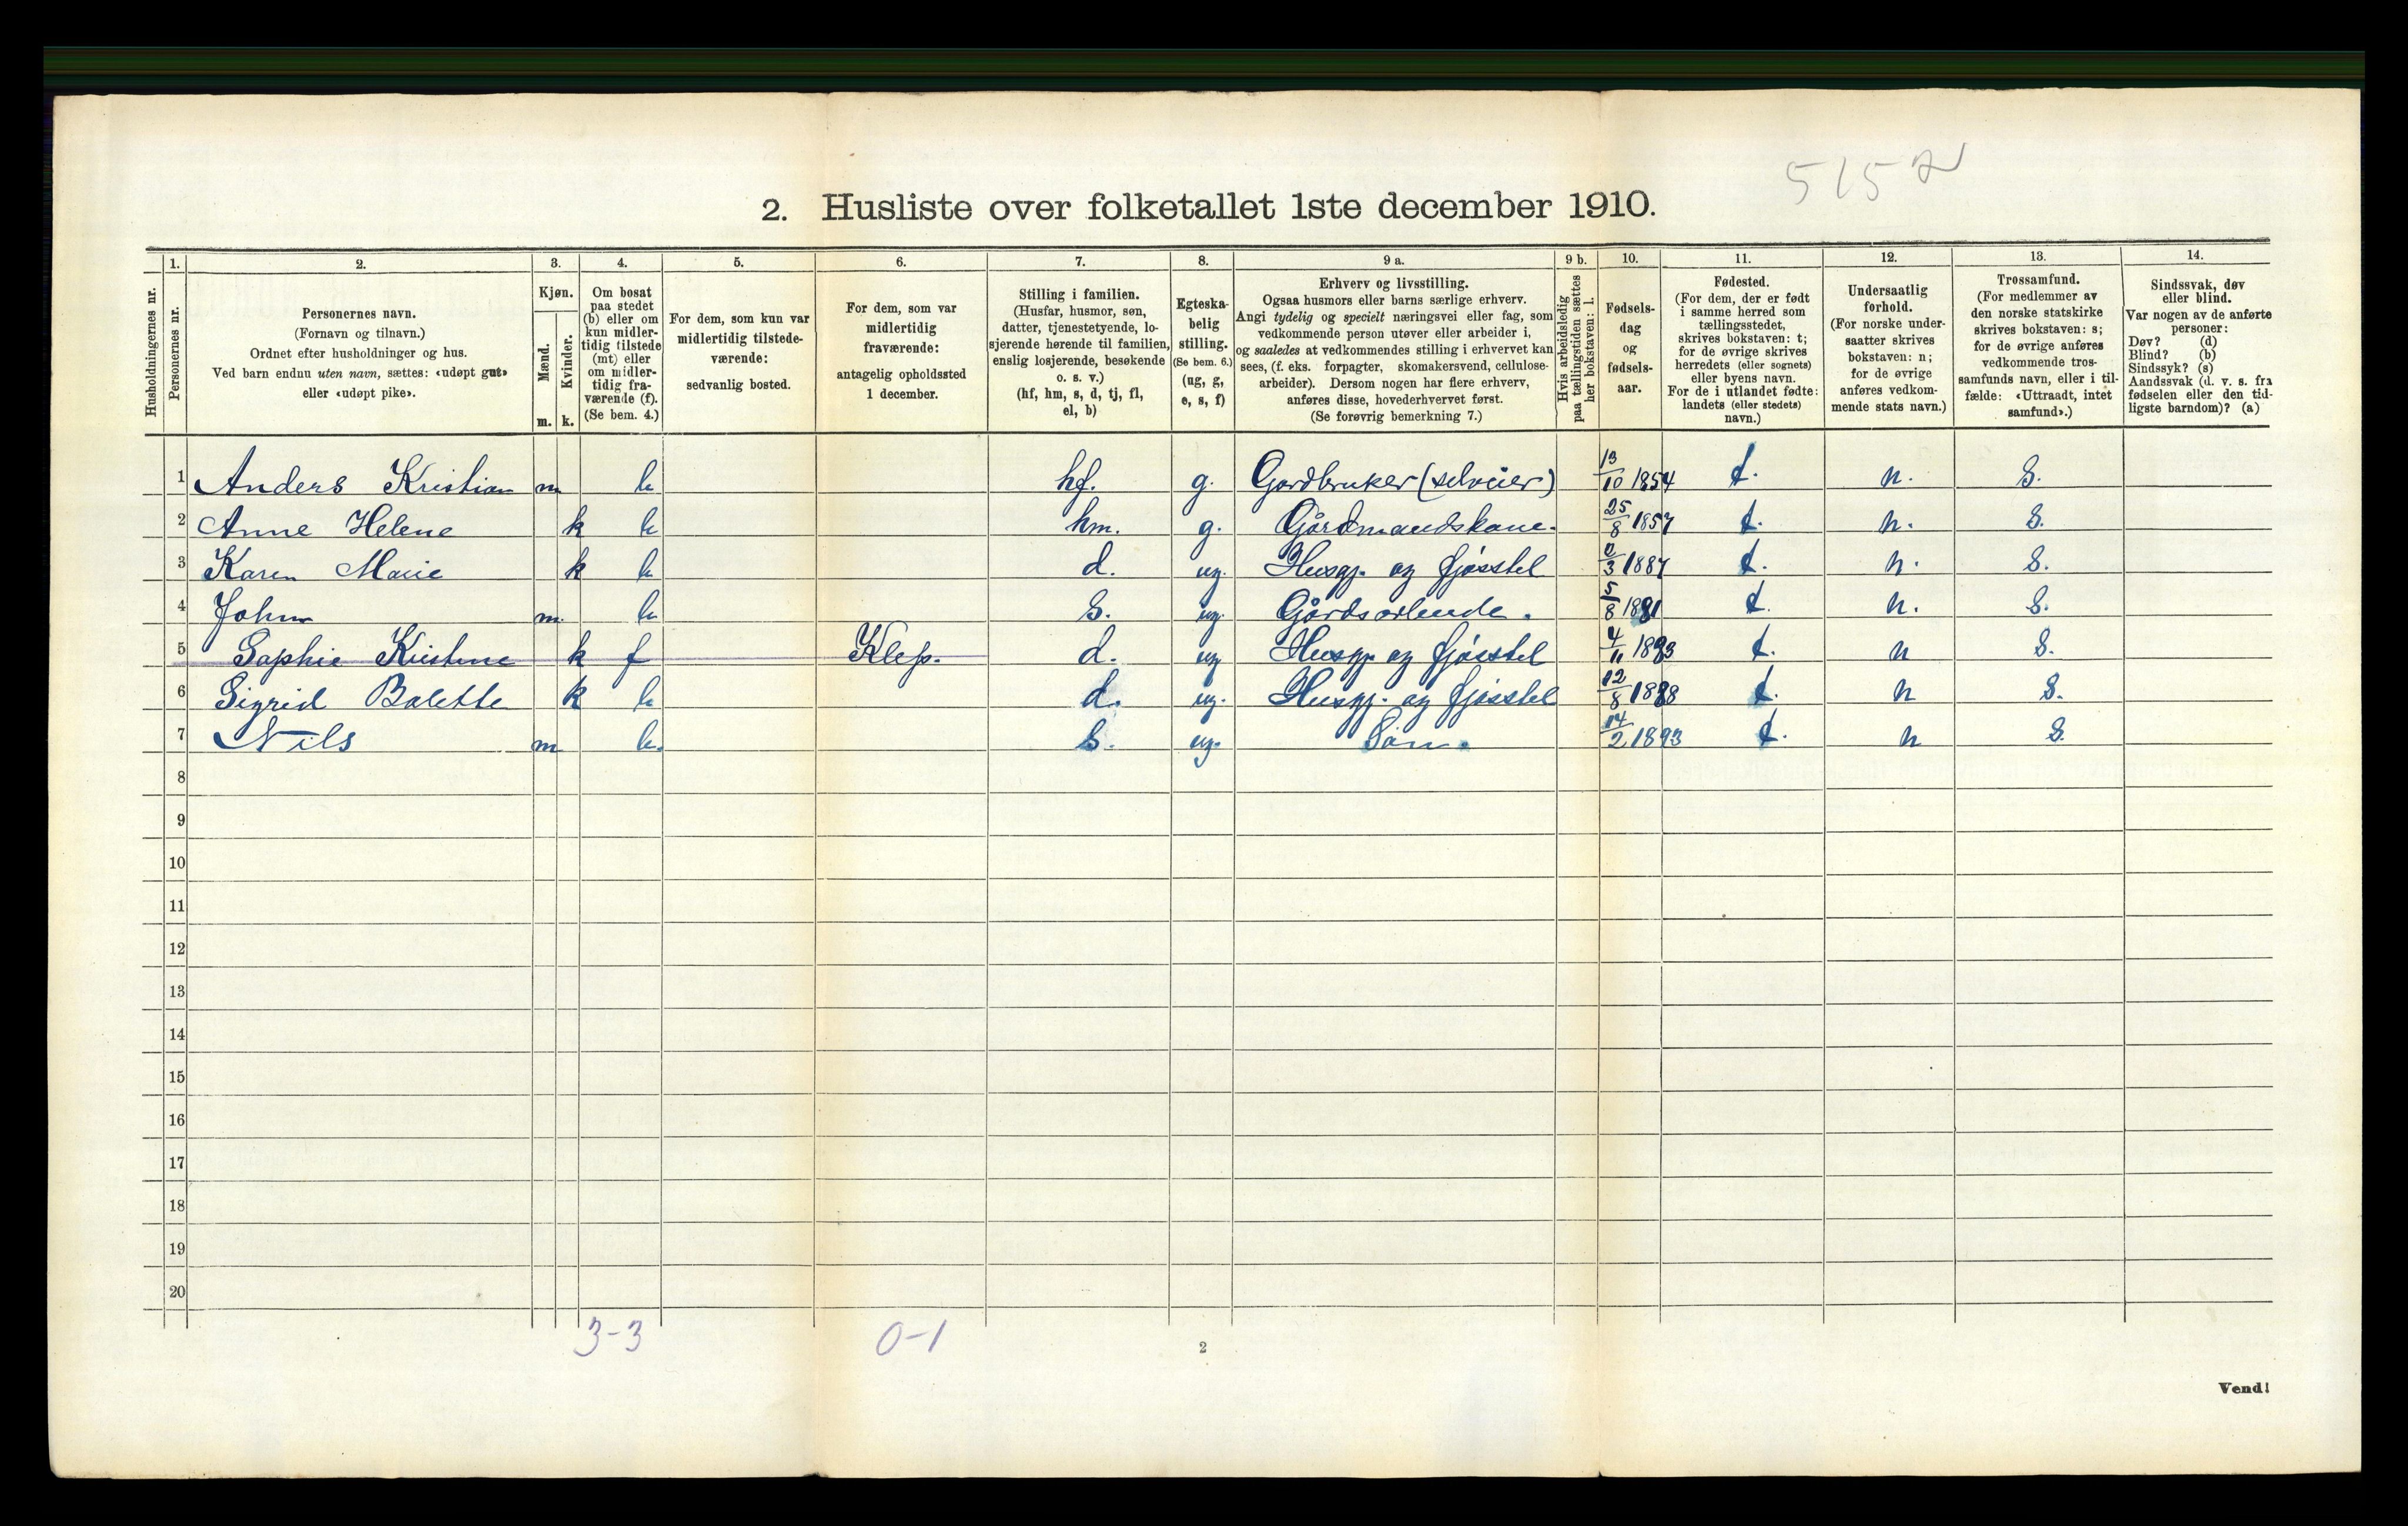 515
2. Husliste over folketallet 1ste december 1910.
Husholdningernes nr.
1. Personernes nr.
2. Personernes navn.
(Fornavn og tilnavn.)
Ordnet efter husholdninger og hus.
Ved barn endnu uten navn, sættes: «udøpt gut»
eller «udøpt pike».
3. Kjøn.
Mænd. m.
Kvinder. k.
4. Om bosat
paa stedet
(b) eller om
kun midler-
tidig tilstede
(mt) eller
om midler-
tidig fra-
værende (f).
(Se bem. 4.)
5. For dem, som kun var
midlertidig tilstede-
værende:
sedvanlig bosted.
6. For dem, som var
midlertidig
fraværende:
antagelig opholdssted
1 december.
7. Stilling i familien.
(Husfar, husmor, søn,
datter, tjenestetyende, lo-
sjerende hørende til familien,
enslig losjerende, besøkende
o. s. v.)
(hf, hm, s, d, tj, fl,
el, b)
8. Egteska-
belig
stilling.
(Se bem. 6.)
(ug, g,
e, s, f)
9 a. Erhverv og livsstilling.
Ogsaa husmors eller barns særlige erhverv.
Angi tydelig og specielt næringsvei eller fag, som
vedkommende person utøver eller arbeider i,
og saaledes at vedkommendes stilling i erhvervet kan
sees, (f. eks. forpagter, skomakersvend, cellulose-
arbeider). Dersom nogen har flere erhverv,
anføres disse, hovederhvervet først.
(Se forøvrig bemerkning 7.)
9 b. Hvis arbeidsledig
paa tællingstiden sættes
her bokstaven: l.
10. Fødsels-
dag
og
fødsels-
aar.
11. Fødested.
(For dem, der er født
i samme herred som
tællingsstedet,
skrives bokstaven: t;
for de øvrige skrives
herredets (eller sognets)
eller byens navn.
For de i utlandet fødte:
landets (eller stedets)
navn.)
12. Undersaatlig
forhold.
(For norske under-
saatter skrives
bokstaven: n;
for de øvrige
anføres vedkom-
mende stats navn.)
13. Trossamfund.
(For medlemmer av
den norske statskirke
skrives bokstaven: s;
for de øvrige anføres
vedkommende tros-
samfunds navn, eller i til-
fælde: «Uttraadt, intet
samfund».)
14. Sindssvak, døv
eller blind.
Var nogen av de anførte
personer:
Døv? (d)
Blind? (b)
Sindssyk? (s)
Aandssvak (d. v. s. fra
fødselen eller den tid-
ligste barndom)? (a)
1 Anders Kristian m b hf. g. Gardbruker (selveier) 13/10 1854 t. n. S.
2 Anne Helene k b hm. g. Gårdmandskone. 25/8 1857 t. n. S.
3 Karen Marie k b d. ug. Husgj. og fjøsstel /3 1887 t. n. S.
4 John m. b S. ug. Gårdsarbeide. 5/8 1881 t. n. S.
5 Sophie Kristine k f Klep. d. ug Husgj. og fjøsstel 4/11 1883 t. n S.
6 Sigrid Bolette k b d. ug. Husgj. og fjøsstel 12/8 1888 t. n S.
7 Nils m b. S. ug. Søn. 14/2 1893 t. n S.
8
9
10
11
12
13
14
15
16
17
18
19
20
3-3 0-1
2
Vend!